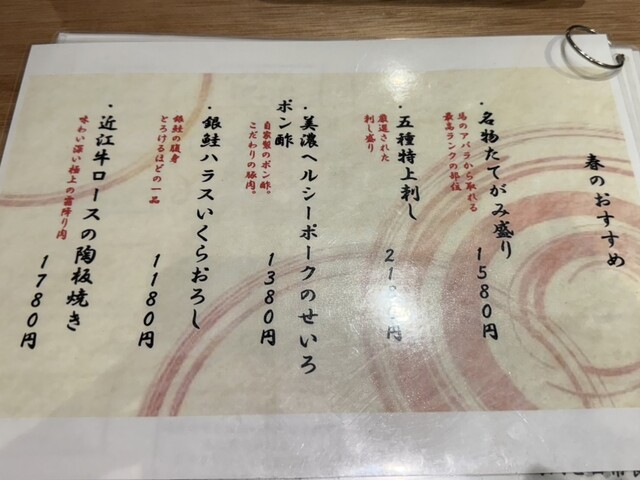 春のおすすめ
・名物たてがみ盛り
馬のアバラから取れる
最高ランクの部位
1580円
・五種特上刺し
厳選された
刺し盛り
円
・美濃ヘルシーポークのせいろ
ポン酢
自家製のポン酢。
こだわりの豚肉。
1380円
・銀鮭ハラスいくらおろし
銀鮭の腹身
とろけるほどの一品
1180円
・近江牛ロースの陶板焼き
味わい深い極上の霜降り肉
1780円